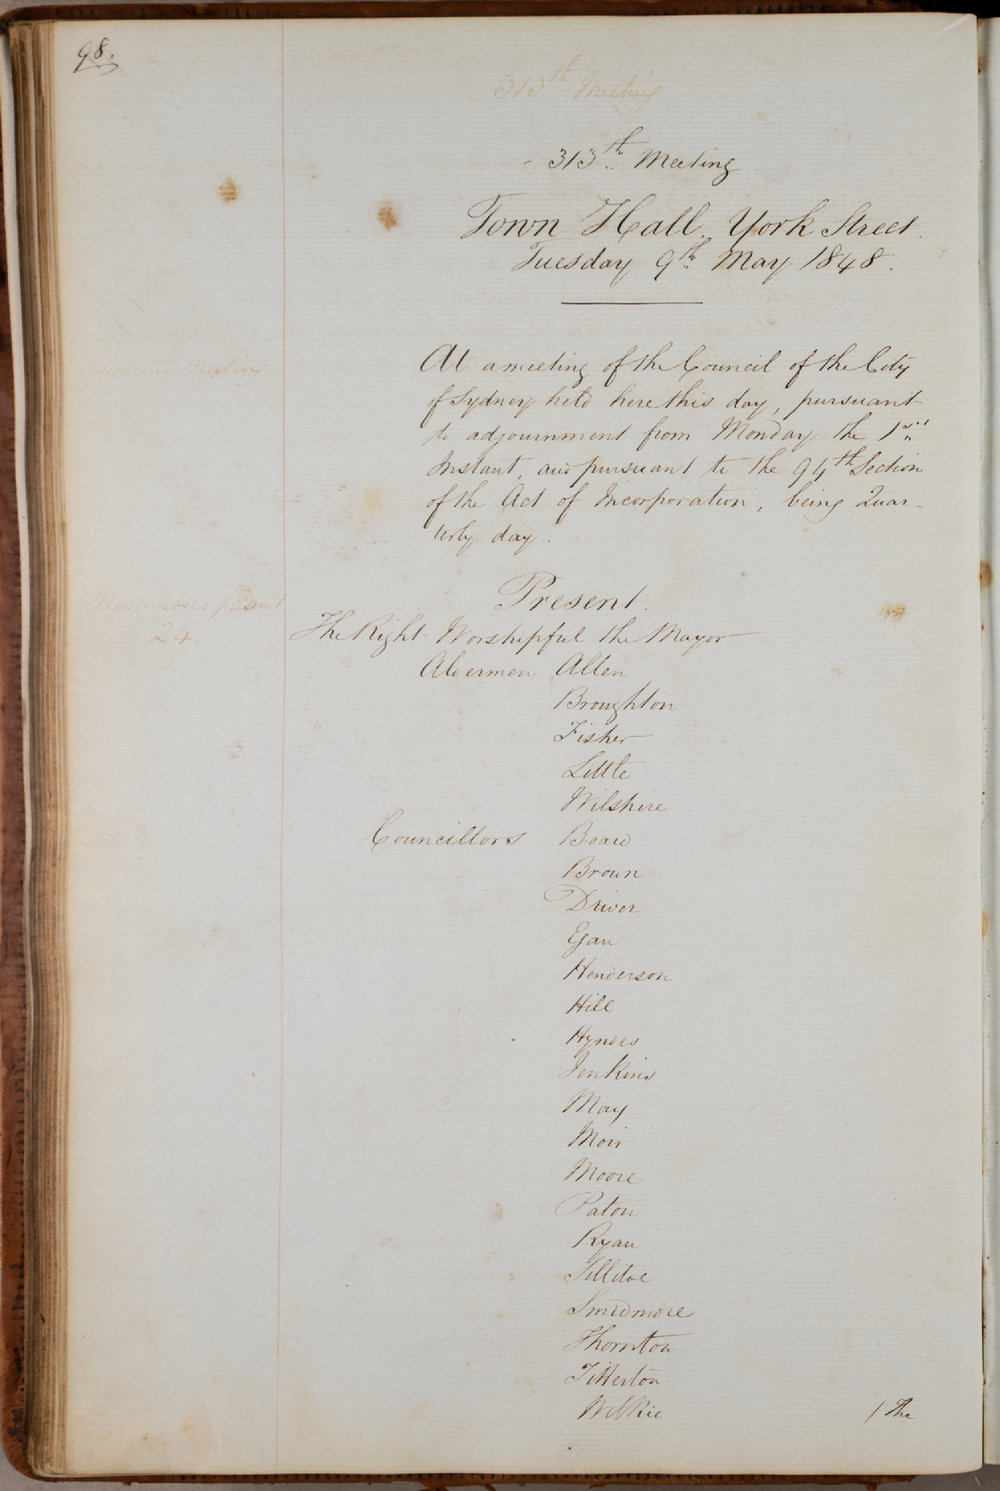 98.
313th Meeting
313th Meeting
Town Hall. York Street.
Tuesday 9th May 1848.
Adjourned Meeting
At a meeting of the Council of the City
of Sydney held here this day, pursuant
to adjournment from Monday the 1st
Instant, and pursuant to the 94th Section
of the Act of Incorporation, being Quar-
terly day.
Present.
members present
24.
The Right Worshipful the Mayor
Aldermen Allen
Broughton
Fisher
Little
Wilshire
Councillors Beard
Brown
Driver
Egan
Henderson
Hill
Hyndes
Jenkins
May
Moir
Moore
Paton
Ryan
Sillitoe
Smidmore
Thornton
Titterton
Wilkie
/ The